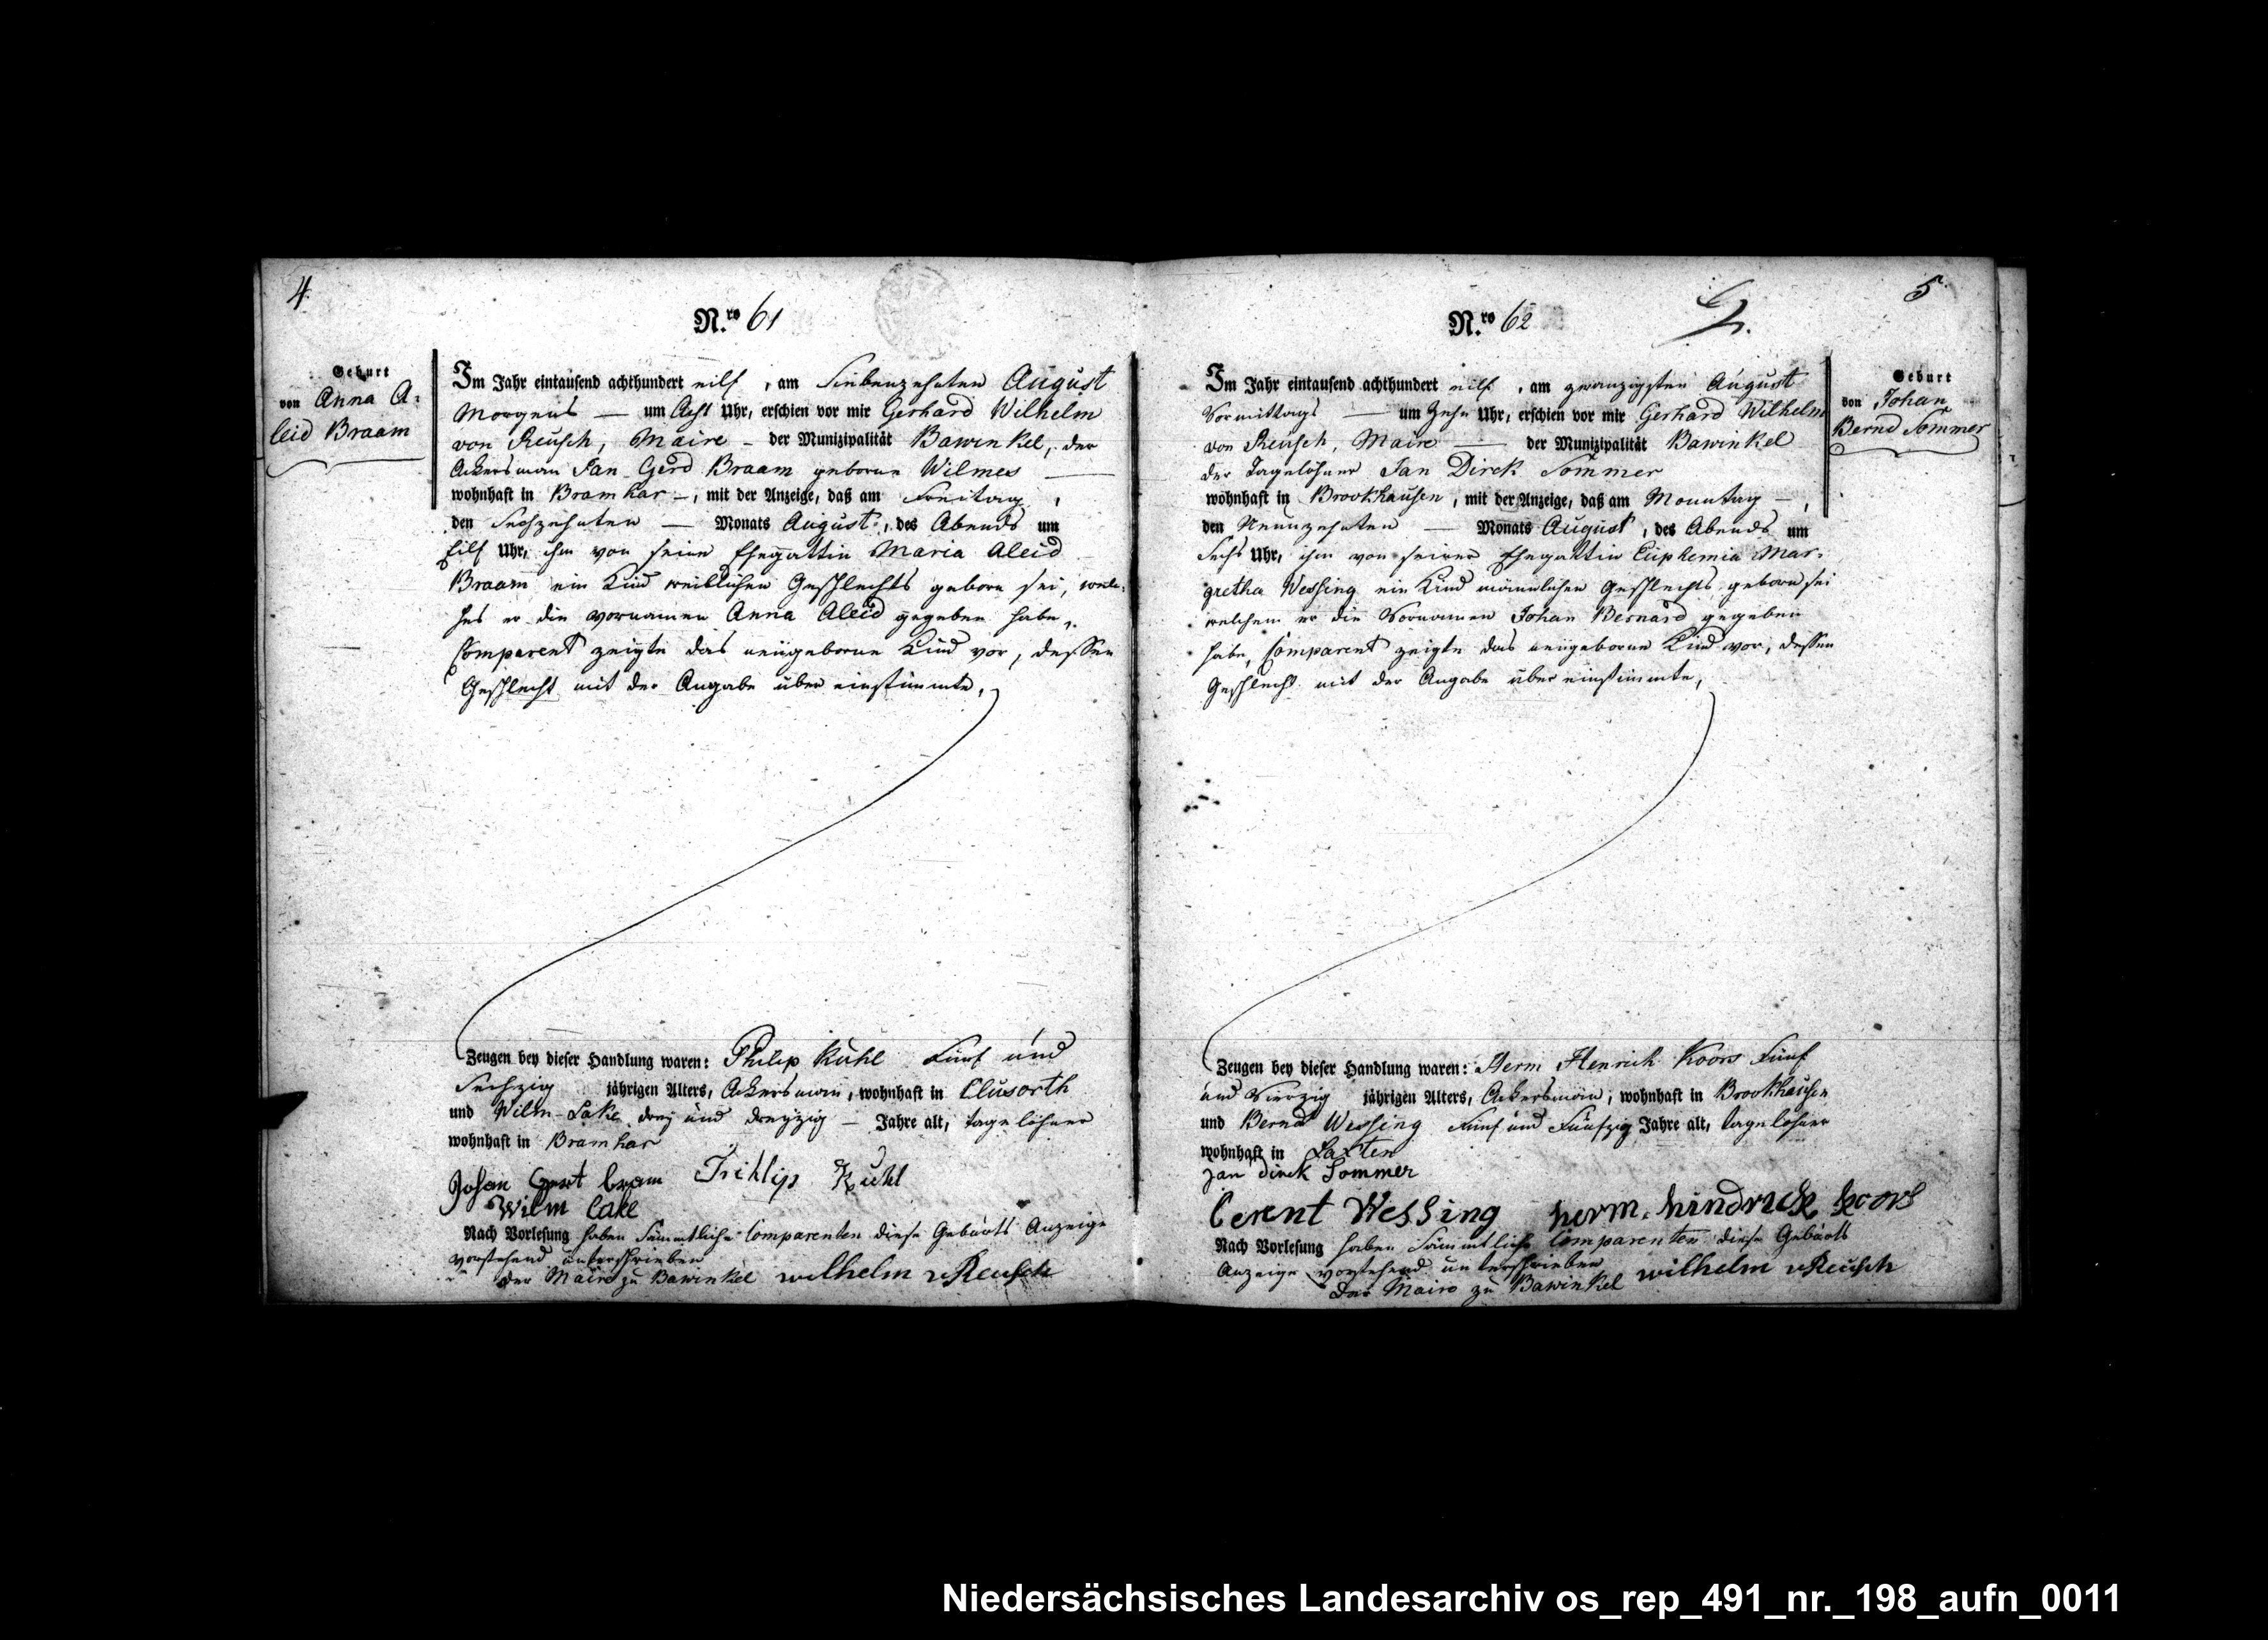 4
N.ro 61
Geburt
von Anna A-
leid Braam
Im Jahr eintausend achthundert eilf, am Siebenzehnten August
Morgens — um Acht Uhr, erschien vor mir Gerhard Wilhelm
von Reusch, Maire – der Munizipalität Bawinkel, der
Ackersman Jan Gerd Braam geborne Wilmes —
wohnhaft in Bramhar –, mit der Anzeige, daß am Freitag,
den Sechzehnten — Monats August, des Abends um
Eilf Uhr, ihm von seine Ehegattin Maria Aleid
Braam ein Kind weiblichen Geschlechts geborn sei, wel-
hes er die vornamen Anna Aleid gegeben habe,
Comparent zeigte das neügeborne Kind vor, dessen
Geschlecht mit der Angabe über einstimmte,
Zeugen bey dieser Handlung waren: Philip Kuhl Fünf und
Sechzig jährigen Alters, Ackersman, wohnhaft in Clusorth
und Wilm Lake drey und dreyzig – Jahre alt, tagelöhner
wohnhaft in Bramhar
Johan Gert bram Vihlip Kuhl
Wilm Lake
Nach Vorlesung haben Sämmtliche Comparenten diese Geburts Anzeige
vorstehend unterschrieben
der Maire zu Bawinkel wilhelm v Reusch
5
N.ro 62
Geburt
von Johan
Bernd Sommer
Im Jahr eintausend achthundert eilf, am zwanzigsten August
Vormittags — um Zehn Uhr, erschien vor mir Gerhard Wilhelm
von Reusch, Maire — der Munizipalität Bawinkel
der Tagelöhner Jan Dirck Sommer
wohnhaft in Brookhausen, mit der Anzeige, daß am Monntag –,
den Neunzehnten — Monats August, des Abends um
Sechs Uhr, ihm von seiner Ehegattin Euphemia Mar-
gretha Wessing ein Kind männlichen Geschlechts geborn sei
welchem er die Vornamen Johan Bernard gegeben
habe, Comparent zeigte das neügeborne Kind vor, dessen
Geschlecht mit der Angabe über einstimmte,
Zeugen bey dieser Handlung waren: Herm Henrich Koors Fünf
und Vierzig jährigen Alters, Ackersman, wohnhaft in Brookhausen
und Bernd Wessing Fünf und Fünfzig Jahre alt, tagelöhner
wohnhaft in Laxten
Jan dirck Sommer
Berent Wessing herm. hindrick koors
Nach Vorlesung haben Sämmtliche Comparenten diese Geburts
Anzeige vorstehend unterschrieben
Der Maire zu Bawinkel wilhelm v Reusch
Niedersächsisches Landesarchiv os_rep_491_nr._198_aufn_0011